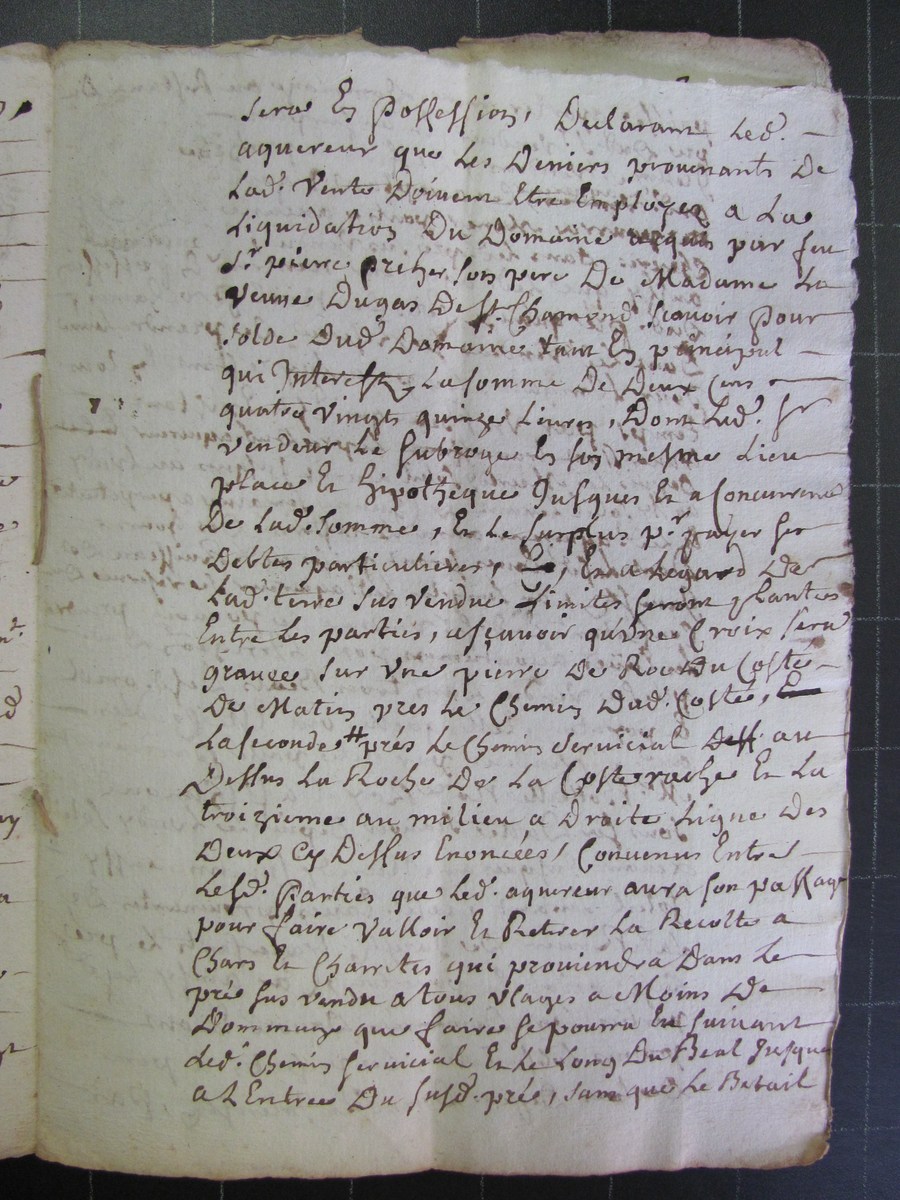 sera En Possession, Declarant Led.
aquereur que Les Deniers provenants De
Lad. vente Doivent Etre Employez a La
Liquidation Du Domaine acquis par feu
Sr. pierre son pere De Madame La
veuve Dugas De St. Chamond Scavoir Pour
solde Dud. Domaine tant En principal
qui Interest, La somme De Deux Cens
quatre vingts quinze Livres, Dont Led. Sr
vendeur Le subroge En son mesme Lieu
place Et hipotheque Jusques Et a Concurrance
De Lad. Somme, Et Le surplus pr. payer ses
Debtes particulieres, Et a Legard De
Lad. terre sus vendue Limites seront plantées
Entre Les parties, ascavoir qu'vne Croix sera
gravée sur vne pierre De Roc Du Costé
De Matin pres Le Chemin Dud. Costé,
La seconde prés Le Chemin servicial au
Dessus La Roche De La Coste rache Et La
troizieme au milieu a Droite Ligne Des
Deux Cy Dessus Enoncées, Convenus Entre
Lesd. Parties que Led. aquereur aura son passage
pour faire valloir Et Retirer La Recolte a
Chars Et Charrettes qui proviendra Dans Le
pré sus vendu a tous vsages a Moins De
Dommage que faire se pourra En suivant
Led. Chemin servicial Et Le Long Du Beal Jusques
a L'Entrée Du susd. pré, sans que Le Betail